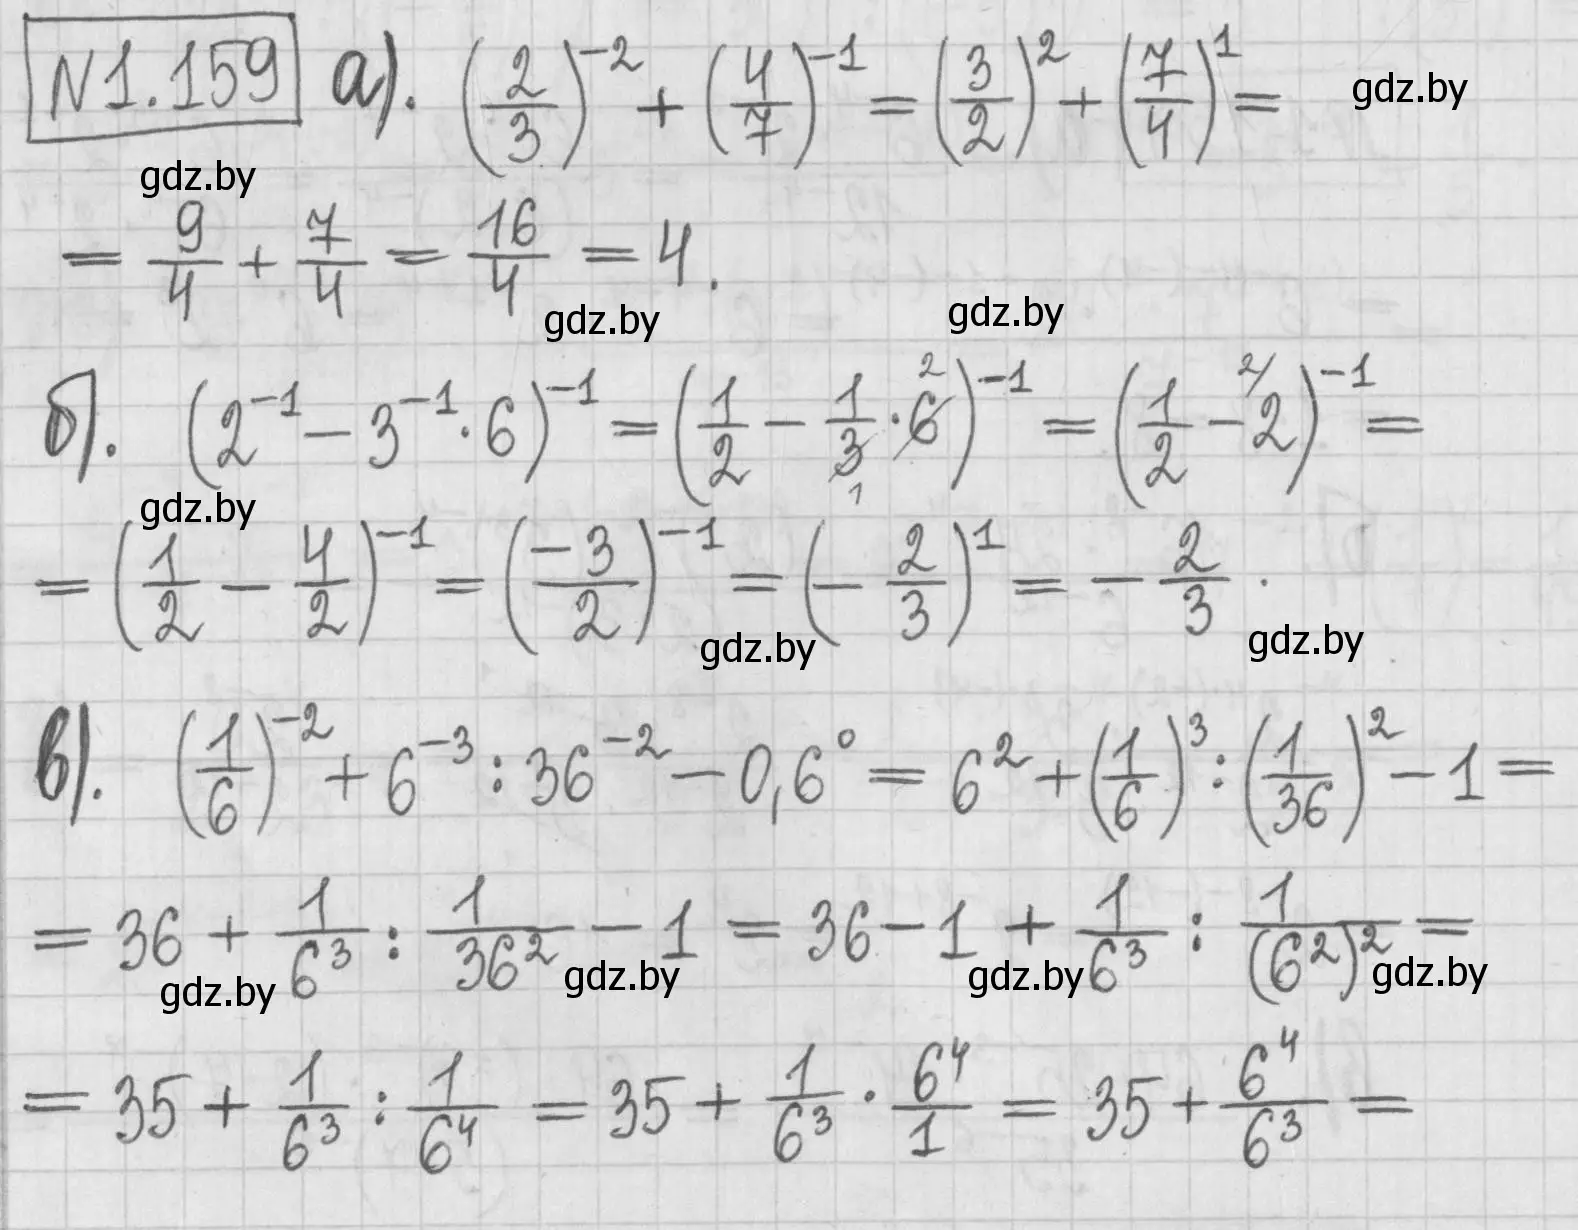 №1.159 а). (2/3)^-2 + (4/7)^-1 = (3/2)^2 + (7/4)^1 = gdz.by
gdz.by
= 9/4 + 7/4 = 16/4 = 4.
gdz.by gdz.by
б). (2^-1 - 3^-1 · 6)^-1 = (1/2 - 1/3 · 6)^-1 = (1/2 - 2)^-1 =
gdz.by
= (1/2 - 4/2)^-1 = (-3/2)^-1 = (-2/3)^1 = -2/3.
gdz.by gdz.by
в). (1/6)^-2 + 6^-3 : 36^-2 - 0,6^0 = 6^2 + (1/6)^3 : (1/36)^2 - 1 =
= 36 + 1/6^3 : 1/36^2 - 1 = 36 - 1 + 1/6^3 : 1/(6^2)^2 =
gdz.by gdz.by gdz.by gdz.by
= 35 + 1/6^3 : 1/6^4 = 35 + 1/6^3 · 6^4/1 = 35 + 6^4/6^3 =